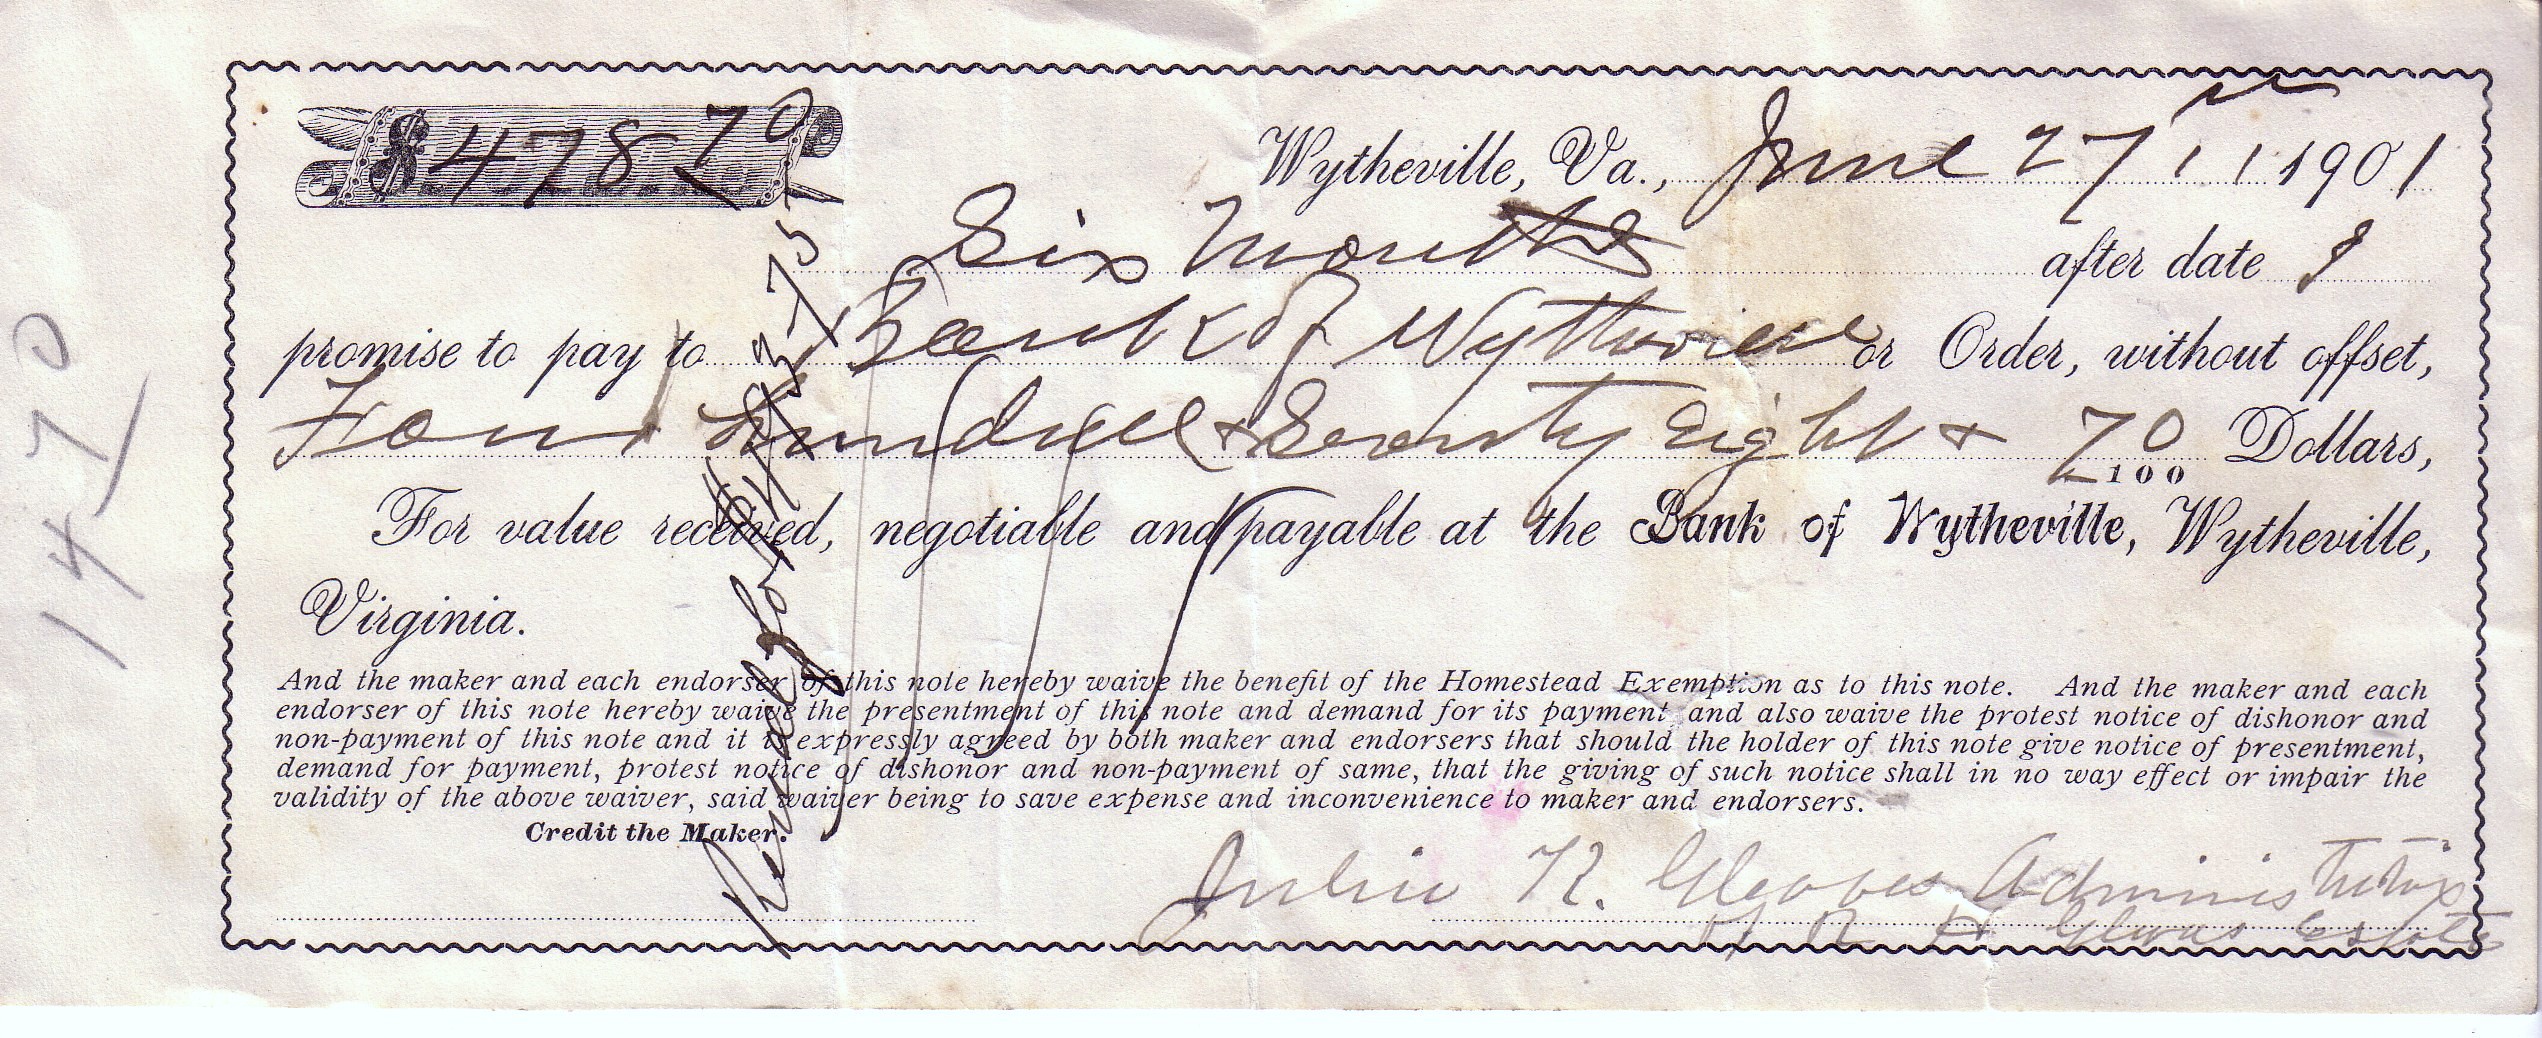 $478 70
Wytheville, Va., June 27 1901
Six Months after date I
promise to pay to Bank of Wytheville or Order, without offset,
Four hundred & Seventy Eight & 70/100 Dollars,
For value received, negotiable and payable at the Bank of Wytheville, Wytheville,
Virginia.
And the maker and each endorser of this note hereby waive the benefit of the Homestead Exemption as to this note. And the maker and each
endorser of this note hereby waive the presentment of this note and demand for its payment and also waive the protest notice of dishonor and
non-payment of this note and it is expressly agreed by both maker and endorsers that should the holder of this note give notice of presentment,
demand for payment, protest notice of dishonor and non-payment of same, that the giving of such notice shall in no way effect or impair the
validity of the above waiver, said waiver being to save expense and inconvenience to maker and endorsers.
Credit the Maker.
R. Administratrix
Estate
1470
for